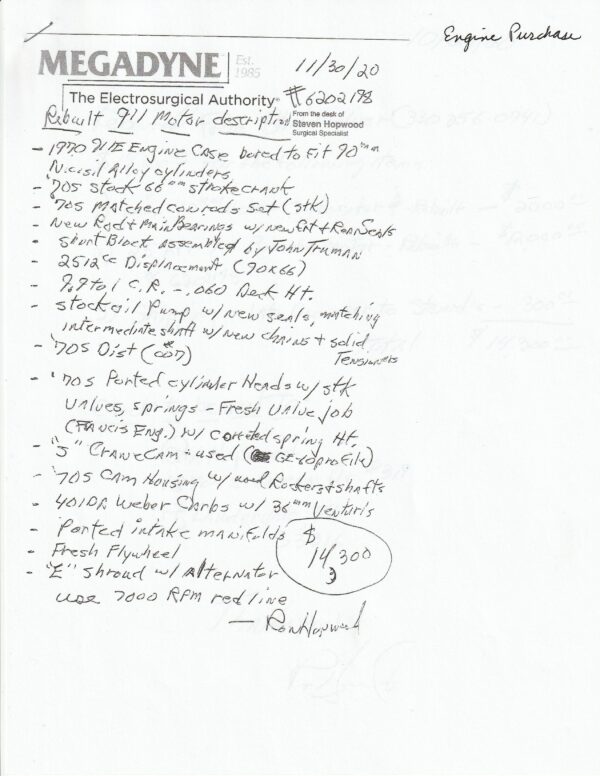 Engine Purchase
MEGADYNE Est. 1985
11/30/20
The Electrosurgical Authority®
#6202198
From the desk of
Steven Hopwood
Surgical Specialist
Rebuilt 911 Motor description
- 1970 911E Engine Case bored to fit 90mm
Nicasil Alloy cylinders
- '70S stock 66mm stroke crank
- '70S Matched conrods Set (stk)
- New Rod + Main Bearings w/ new Frt + Rear Seals
- Short Block Assembled by John Truman
- 2512cc Displacement (90x66)
- 9.9 to 1 C.R. - .060 Deck Ht.
- Stock oil Pump w/ new seals, matching
intermediate shaft w/ new chains + solid
Tensioners
- '70S Dist (007)
- '70S Ported cylinder Heads w/ stk
valves, springs - Fresh Valve job
(Francis Eng.) w/ corrected spring Ht.
- "S" Crane Cam - used (GE-60 profile)
- '70S Cam Housing w/ used Rockers + shafts
- 40IDA Weber Carbs w/ 36mm Venturis
- Ported intake manifolds
- Fresh Flywheel
- "E" Shroud w/ Alternator
$14,300
use 7000 RPM redline
— Ron Hopwood